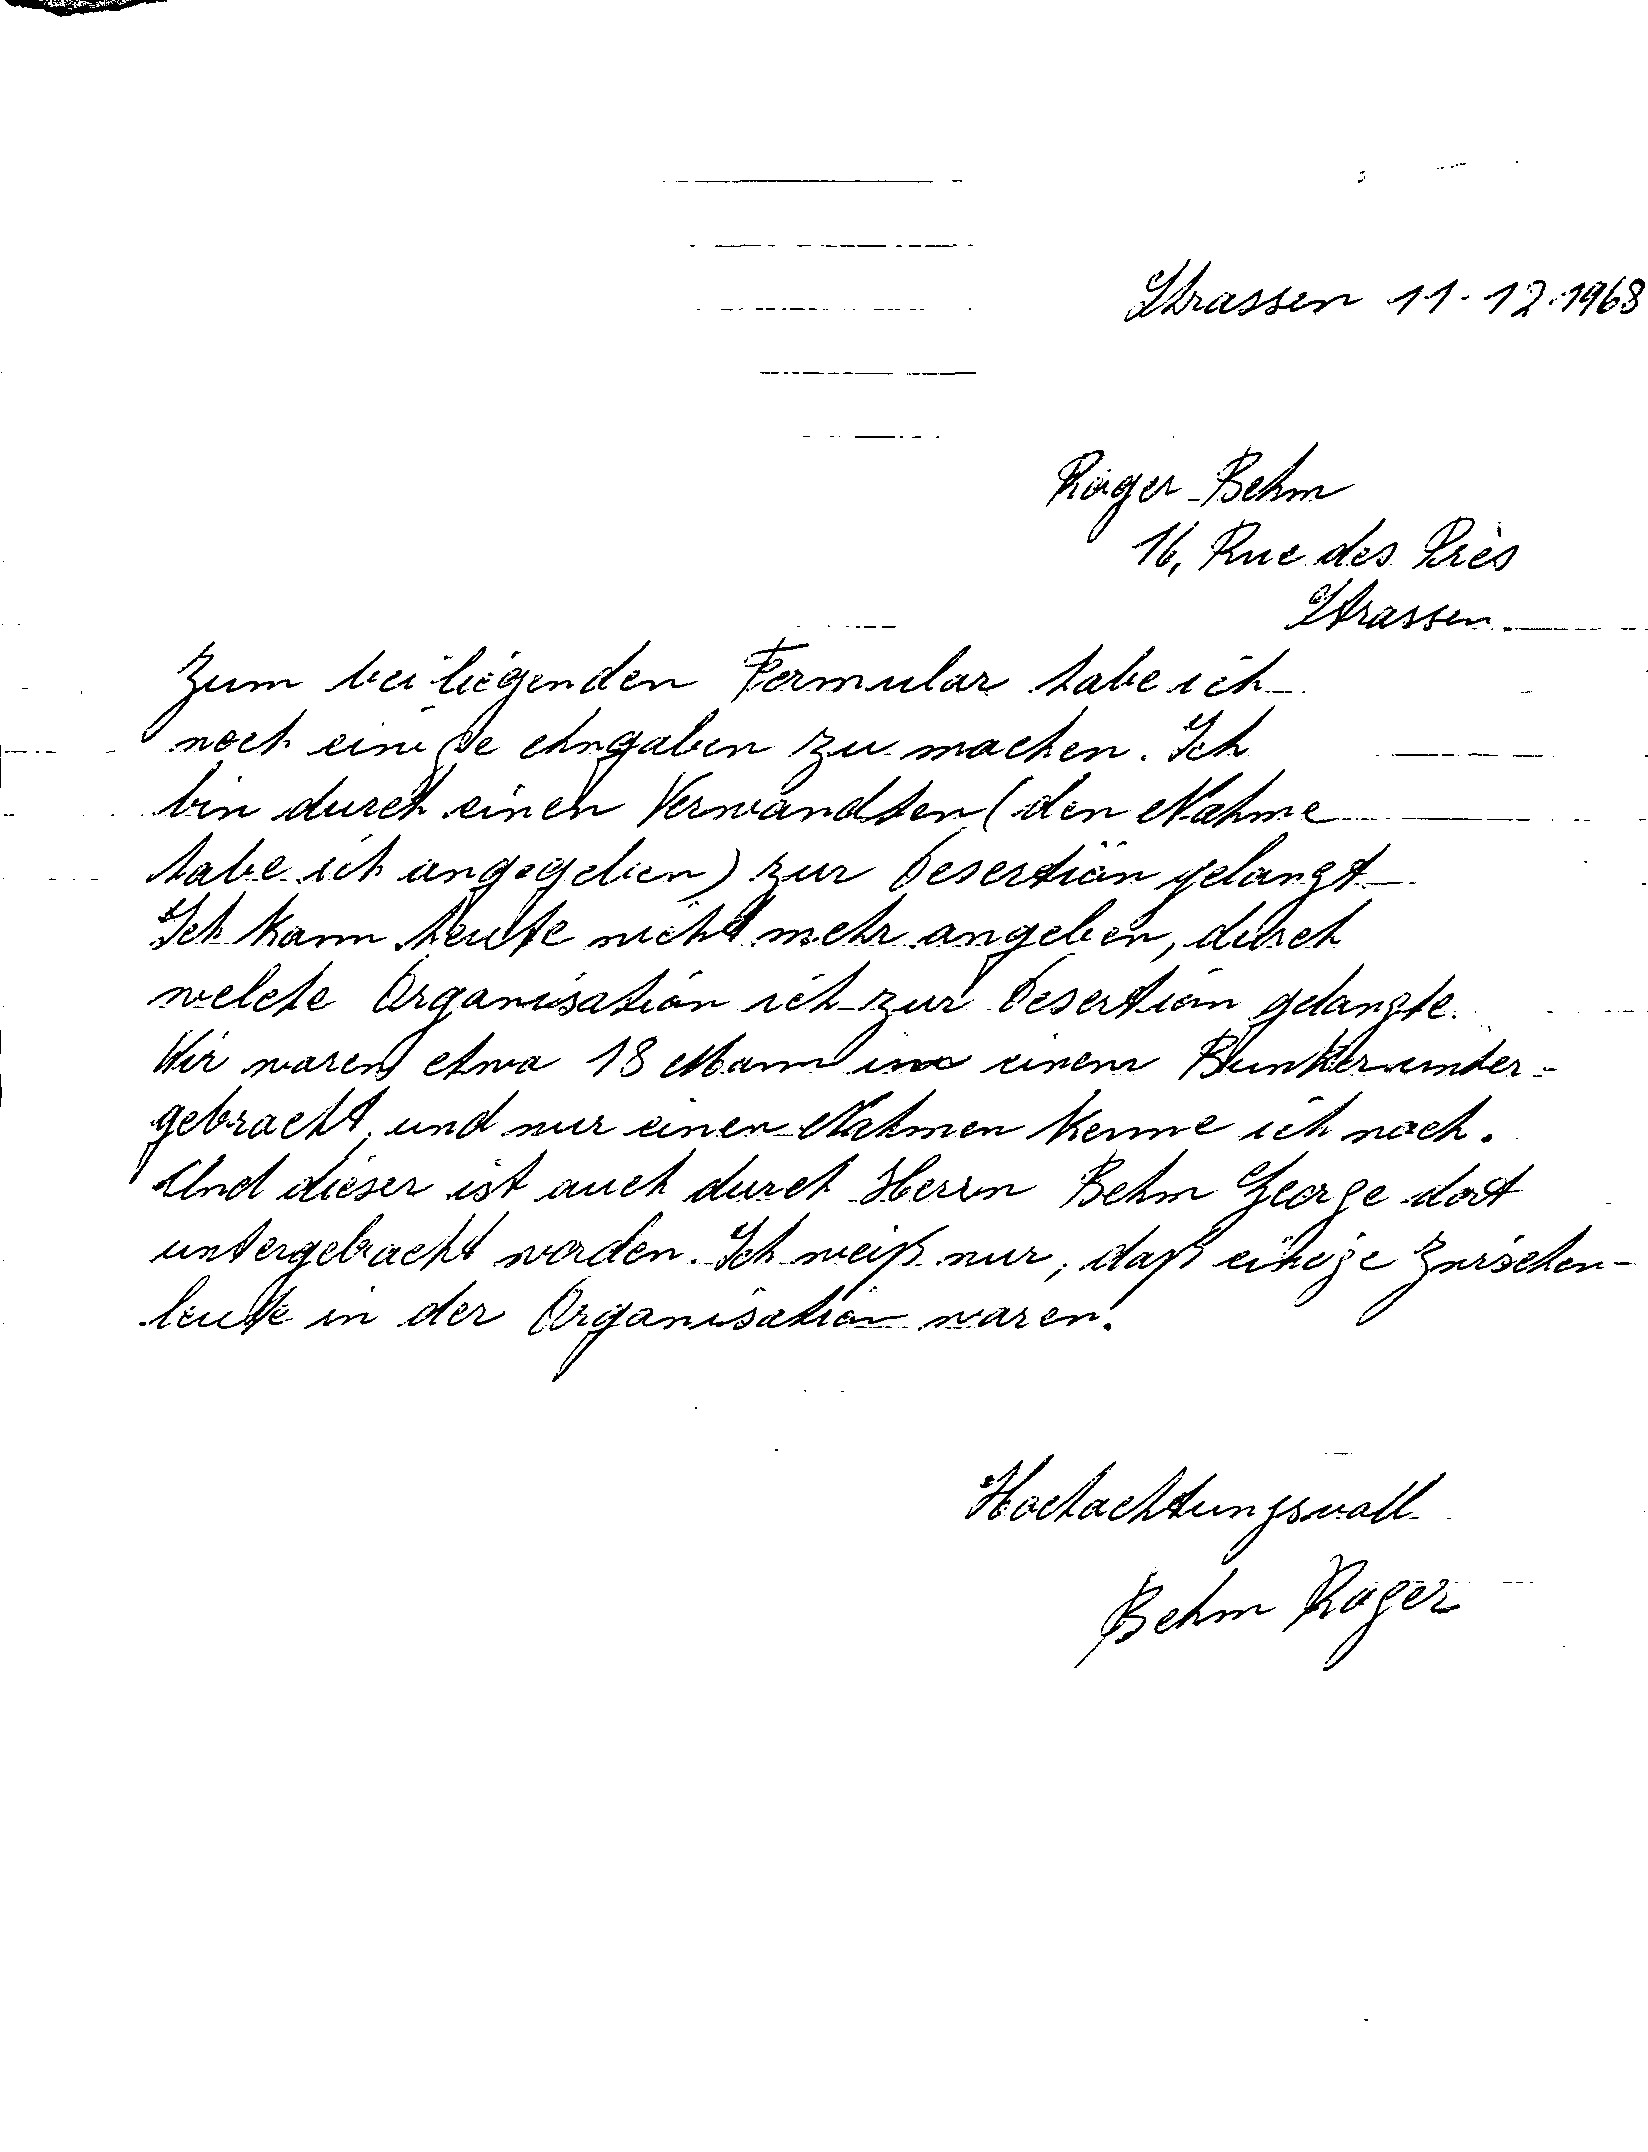 Strassen 11.12.1968
Roger Behm
16, Rue des Près
Strassen.
Zum beiliegenden Formular habe ich
noch einige Angaben zu machen. Ich
bin durch einen Verwandten (den Nahme
habe ich angegeben) zur Desertion gelangt
Ich kann heute nicht mehr angeben, durch
welche Organisation ich zur Desertion gelangte.
Wir waren etwa 18 Mann in einem Bunker unter-
gebracht, und nur einen Nahmen kenne ich noch.
Und dieser ist auch durch Herrn Behm George dort
untergebracht worden. Ich weiß nur, daß einige Zwischen-
leute in der Organisation waren.
Hochachtungsvoll
Behm Roger